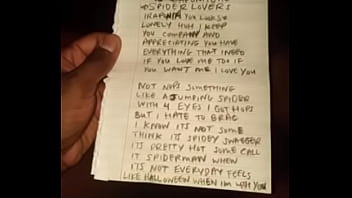 SPIDER LOVERS
YOU LOOK SO
LONELY HUH I KEEP
YOU COMPANY AND
APPRECIATING YOU HAVE
EVERYTHING THAT I NEED
IF YOU LOVE ME TOO IF
YOU WANT ME I LOVE YOU
NOT SOMETHING
LIKE A JUMPING SPIDER
WITH 4 EYES I GOT HOPS
BUT I HATE TO BRAG
I KNOW ITS NOT SOME
THINK ITS SPIDEY SWAGGER
ITS PRETTY HOT SOME CALL
IT SPIDERMAN WHEN
ITS NOT EVERYDAY FEELS
LIKE HALLOWEEN WHEN IM WITH YOU